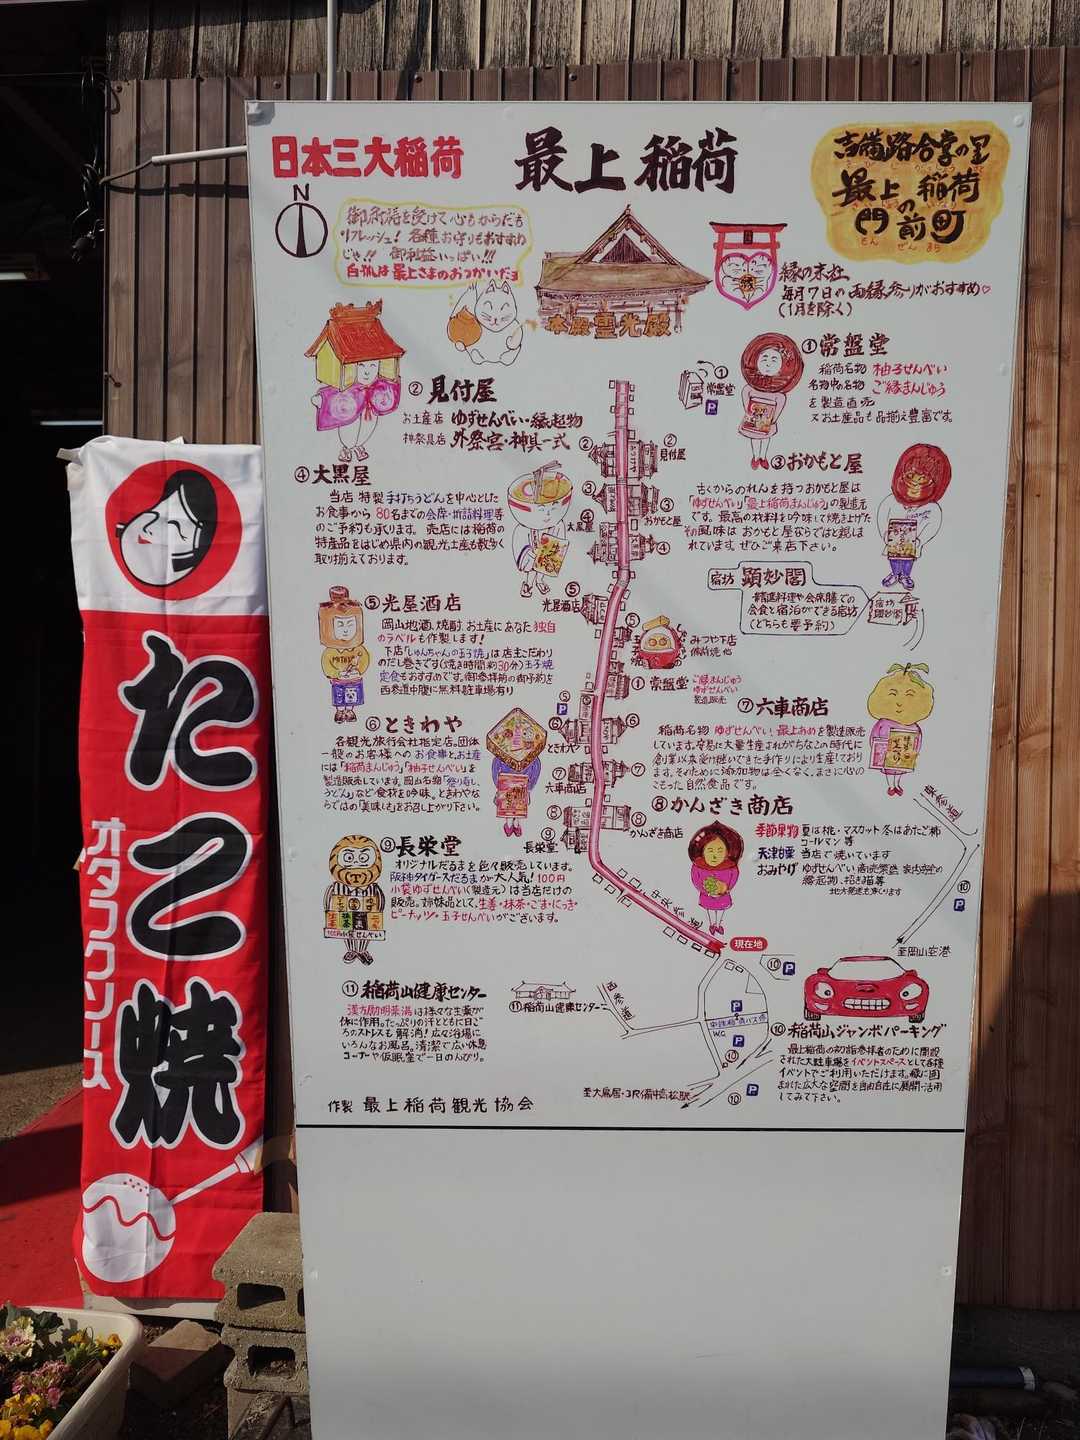 日本三大稲荷
最上稲荷
吉備路合掌の里
最上稲荷
の
門前町
もん ぜん まち
N
御祈祷を受けて心もからだも
リフレッシュ! 各種お守りもおすすめ
じゃ!! 御利益いっぱい!!!
白狐は最上さまのおつかいだヨ
本殿霊光殿
縁の末社
毎月7日の両縁参りがおすすめ♡
(1月を除く)
①常盤堂
稲荷名物 柚子せんべい
名物中の名物 ご縁まんじゅう
を製造直売
又お土産品も品揃え豊富です。
②見付屋
お土産店 ゆずせんべい・縁起物
神祭具店 外祭宮・神具一式
③おかもと屋
古くからのれんを持つおかもと屋は
「ゆずせんべい」「最上稲荷まんじゅう」の製造元
です。最高の材料を吟味して焼き上げた
その風味は おかもと屋ならではと親し
まれています。ぜひご来店下さい。
④大黒屋
当店 特製 手打ちうどんを中心とした
お食事から 80名までの会席・折詰料理等
のご予約も承ります。売店には稲荷の
特産品をはじめ県内の観光土産も数多く
取り揃えております。
宿坊 顕妙閣
精進料理や会席膳での
会食と宿泊ができる宿坊
(どちらも要予約)
宿坊
顕妙閣
⑤光屋酒店
岡山地酒、焼酎、お土産にあなた独自
のラベルも作製します!
下店「しゅんちゃんの玉子焼」は店主こだわり
のだし巻きです(焼き時間約30分)玉子焼
定食もおすすめです。御参拝前の御予約を
西参道中腹に無料駐車場有り
⑥ときわや
各観光旅行会社指定店。団体
一般のお客様へのお食事とお土産
には「稲荷まんじゅう」「柚子せんべい」を
製造販売しています。岡山名物「祭り寿し、
うどん」など食材を吟味、ときわやな
らではの「美味しさ」をお召し上がり下さい。
⑦六車商店
稲荷名物 ゆずせんべい、最上あめを製造販売
しています。安易に大量生産されがちなこの時代に
創業以来受け継いできた手作りにより生産しており
ます。そのために添加物は全くなく、まさに心の
こもった自然食品です。
⑧かんざき商店
季節果物 夏は桃・マスカット 冬はあたご柿
コールマン 等
天津甘栗 当店で焼いています
おみやげ ゆずせんべい
縁起物、招き猫等
地方発送も承ります
⑨長栄堂
オリジナルだるまを色々販売しています。
阪神タイガースだるまが大人気! 100円
小袋ゆずせんべい(製造元)は当店だけの
販売。姉妹品として、生姜・抹茶・ごま・にっき・
ピーナッツ・玉子せんべいがございます。
⑩稲荷山ジャンボパーキング
最上稲荷の初詣参拝者のために開設
された大駐車場をイベントスペースとして各種
イベントでご利用いただけます。緑に囲
まれた広大な空間を自由自在に展開・活用
してみて下さい。
⑪稲荷山健康センター
漢方励明薬湯は様々な生薬が
体に作用、たっぷりの汗とともに日ご
ろのストレスも解消! 広々浴場に
いろんなお風呂。清潔で広い休息
コーナーや仮眠室で一日のんびり。
①
常盤堂
P
②
②
見付屋
③
③
おかもと屋
④
大黒屋
④
⑤
光屋酒店
⑤
みつや下店
備前焼 他
①常盤堂
ご縁まんじゅう
ゆずせんべい
製造販売
⑤
P
⑥
⑥
ときわや
⑦
⑦
六車商店
⑧
⑧
かんざき商店
⑨
長栄堂
中央参道
現在地
東参道
⑩
P
至岡山空港
⑩P
⑪稲荷山健康センター
西参道
P
W.C
P
⑩P
⑩P
至大鳥居・JR備中高松駅
作製 最上稲荷観光協会
たこ焼
オタフクソース